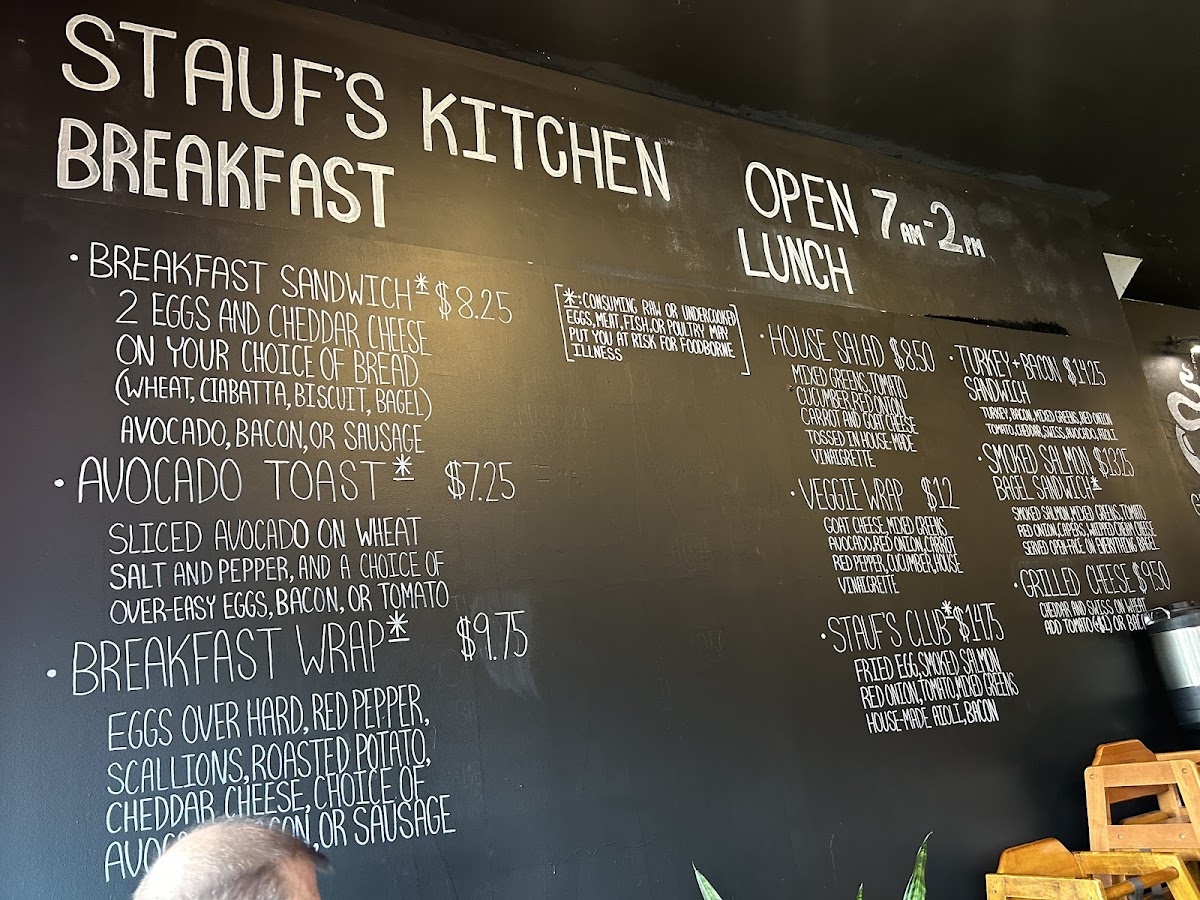 STAUF'S KITCHEN
OPEN 7AM-2PM
BREAKFAST
• BREAKFAST SANDWICH* $8.25
2 EGGS AND CHEDDAR CHEESE
ON YOUR CHOICE OF BREAD
(WHEAT, CIABATTA, BISCUIT, BAGEL)
AVOCADO, BACON, OR SAUSAGE
• AVOCADO TOAST* $7.25
SLICED AVOCADO ON WHEAT
SALT AND PEPPER, AND A CHOICE OF
OVER-EASY EGGS, BACON, OR TOMATO
• BREAKFAST WRAP* $9.75
EGGS OVER HARD, RED PEPPER,
SCALLIONS, ROASTED POTATO,
CHEDDAR CHEESE, CHOICE OF
OR SAUSAGE
[*:CONSUMING RAW OR UNDERCOOKED
EGGS, MEAT, FISH, OR POULTRY MAY
PUT YOU AT RISK FOR FOODBORNE
ILLNESS]
LUNCH
• HOUSE SALAD $8.50
MIXED GREENS, TOMATO
CUCUMBER, RED ONION,
CARROT AND GOAT CHEESE
TOSSED IN HOUSE-MADE
VINAIGRETTE
• VEGGIE WRAP $12
GOAT CHEESE, MIXED GREENS
AVOCADO, RED ONION, CARROT
RED PEPPER, CUCUMBER, HOUSE
VINAIGRETTE
• STAUF'S CLUB* $14.75
FRIED EGG, SMOKED SALMON
RED ONION, TOMATO, MIXED GREENS
HOUSE-MADE AIOLI, BACON
• TURKEY + BACON $14.25
SANDWICH
TURKEY, BACON, MIXED GREENS, RED ONION
TOMATO, CHEDDAR, SWISS, AVOCADO, AIOLI
• SMOKED SALMON $13.25
BAGEL SANDWICH*
SMOKED SALMON, MIXED GREENS, TOMATO
RED ONION, CAPERS, WHIPPED CREAM CHEESE
SERVED OPEN-FACE ON EVERYTHING BAGEL
• GRILLED CHEESE $9.50
CHEDDAR AND SWISS ON WHEAT
ADD TOMATO (+$1), OR